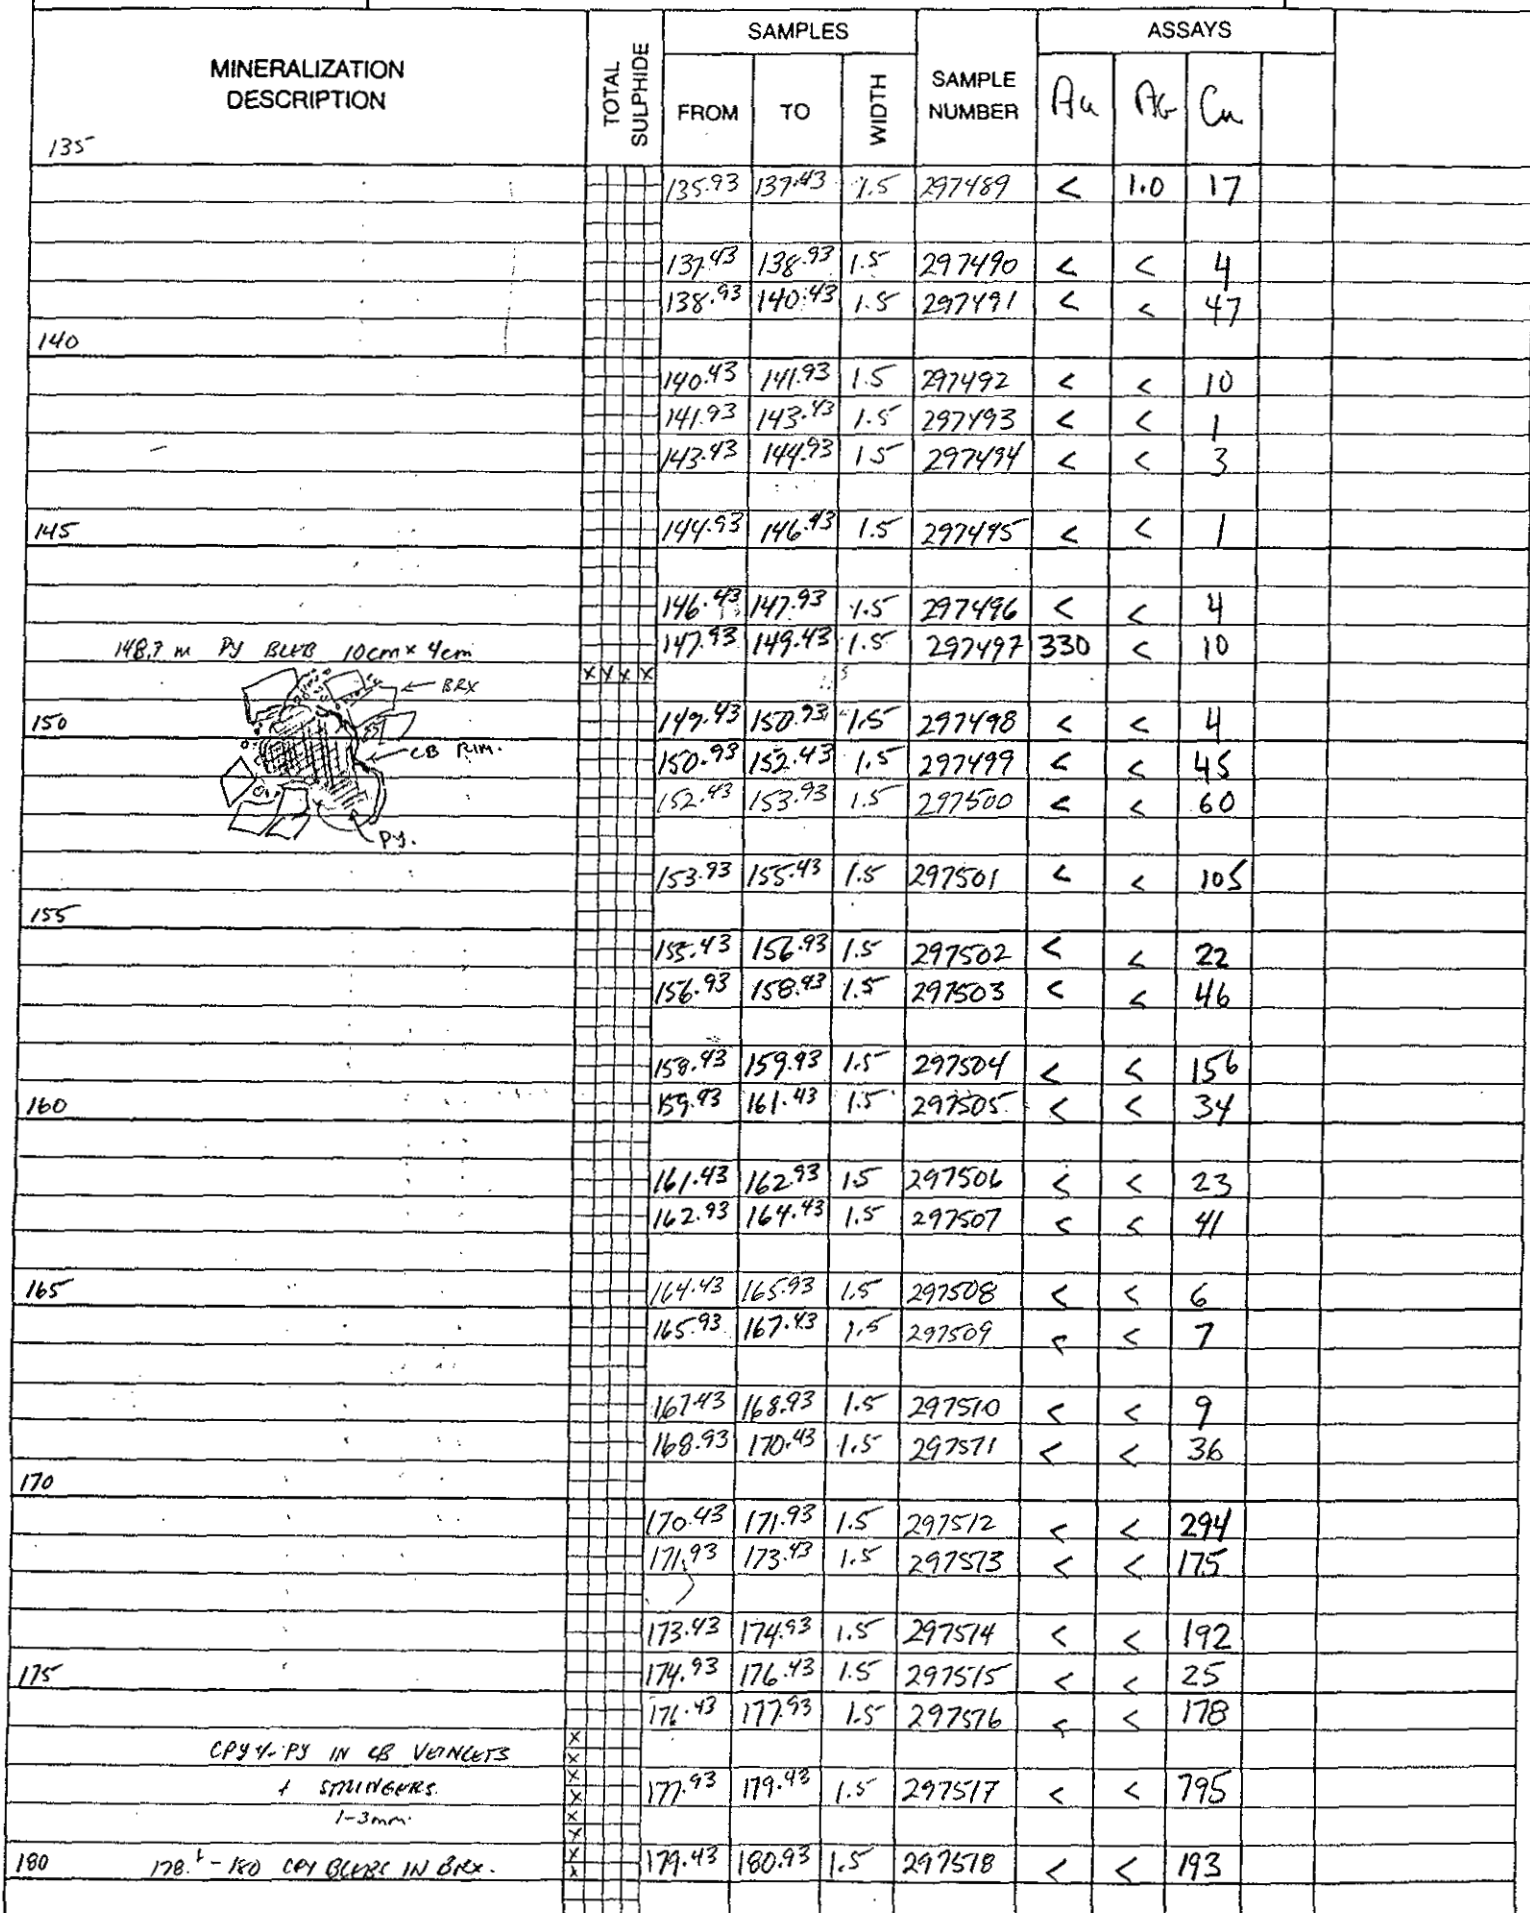 SAMPLES ASSAYS
MINERALIZATION DESCRIPTION TOTAL SULPHIDE FROM TO WIDTH SAMPLE NUMBER Au AG Cu
135
135.93 137.43 1.5 297489 < 1.0 17
137.43 138.93 1.5 297490 < < 4
138.93 140.43 1.5 297491 < < 47
140
140.43 141.93 1.5 297492 < < 10
141.93 143.43 1.5 297493 < < 1
143.43 144.93 1.5 297494 < < 3
145 144.93 146.43 1.5 297495 < < 1
146.43 147.93 1.5 297496 < < 4
148.7 m PY BLEB 10cm x 4cm 147.93 149.43 1.5 297497 330 < 10
x x x x
BRX
150 149.43 150.93 1.5 297498 < < 4
CB RIM. 150.93 152.43 1.5 297499 < < 45
152.43 153.93 1.5 297500 < < 60
PY.
153.93 155.43 1.5 297501 < < 105
155
155.43 156.93 1.5 297502 < < 22
156.93 158.43 1.5 297503 < < 46
158.43 159.93 1.5 297504 < < 156
160 159.93 161.43 1.5 297505 < < 34
161.43 162.93 1.5 297506 < < 23
162.93 164.43 1.5 297507 < < 41
165 164.43 165.93 1.5 297508 < < 6
165.93 167.43 1.5 297509 < < 7
167.43 168.93 1.5 297510 < < 9
168.93 170.43 1.5 297511 < < 36
170
170.43 171.93 1.5 297512 < < 294
171.93 173.43 1.5 297513 < < 175
173.43 174.93 1.5 297514 < < 192
175 174.93 176.43 1.5 297515 < < 25
176.43 177.93 1.5 297516 < < 178
x
CPY +/- PY IN CB VEINLETS x
+ STRINGERS. x 177.93 179.43 1.5 297517 < < 795
x
1-3mm. x
x
180 - 180 CPY BLEBS IN BRX. x 179.43 180.93 1.5 297518 < < 193
x